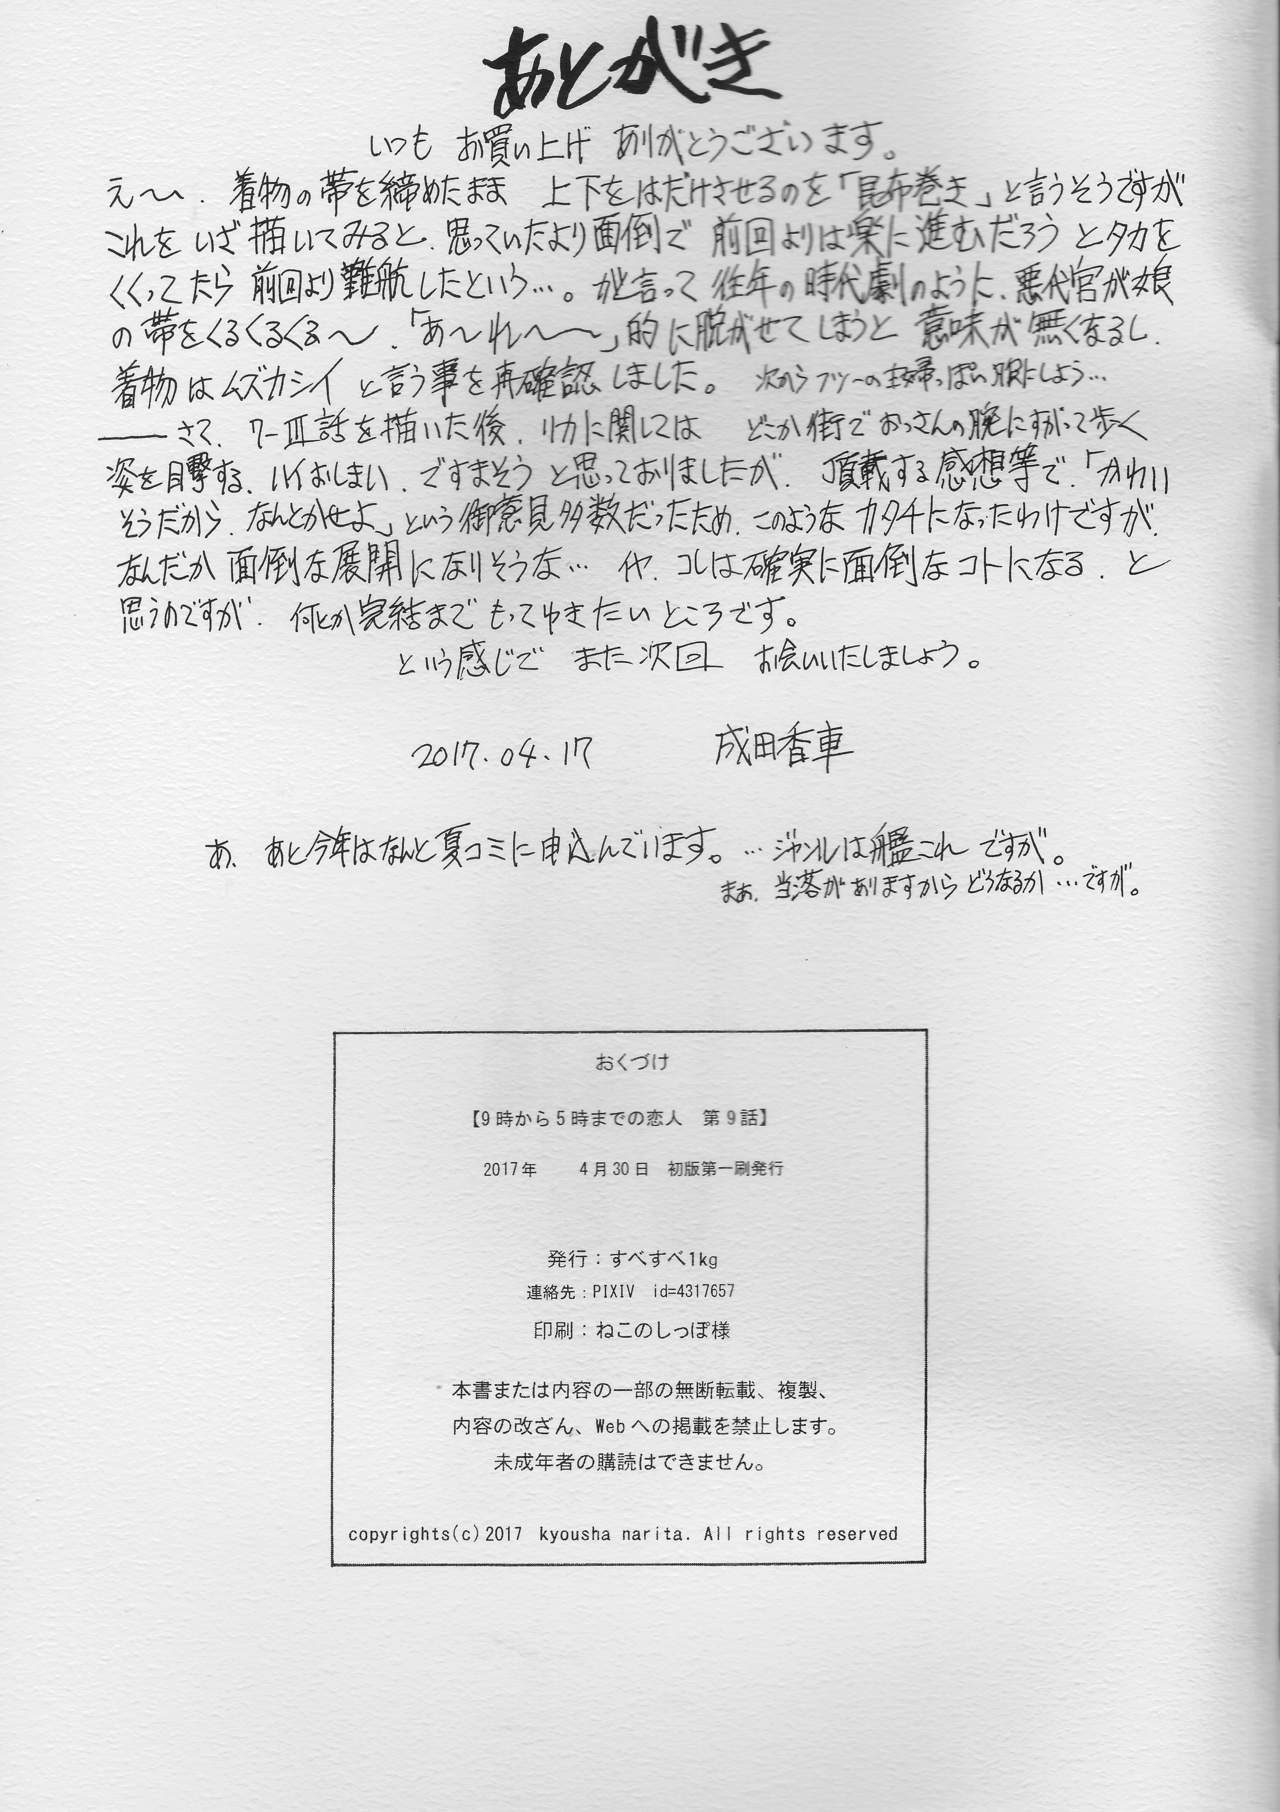 あとがき
いつも お買い上げ ありがとうございます。
え〜、着物の帯を締めたまま 上下をはだけさせるのを「昆布巻き」と言うそうですが
これを いざ描いてみると、思っていたより面倒で 前回よりは楽に進むだろう とタカを
くくってたら 前回より難航したという…。かと言って 往年の時代劇のように、悪代官が娘
の帯をくるくるくる〜、「あ〜れ〜〜」的に脱がせてしまうと 意味が無くなるし、
着物はムズカシイ と言う事を再確認しました。 次からフツーの主婦っぽい服にしよう…
――さて、7-Ⅲ話を描いた後、リカに関しては どこか街でおっさんの腕にすがって歩く
姿を目撃する、ハイおしまい、ですまそう と思っておりましたが、頂戴する感想等で、「かわい
そうだから、なんとかせよ」という御意見多数だったため、このようなカタチになったわけですが、
なんだか面倒な展開になりそうな… イヤ、コレは確実に面倒なコトになる、と
思うのですが、何とか完結まで もってゆきたいところです。
という感じで また次回 お会いいたしましょう。
2017.04.17 成田香車
あ、あと今年はなんと夏コミに申込んでいます。…ジャンルは艦これ ですが。
まあ、当落がありますから どうなるか…ですが。
おくづけ
【9時から5時までの恋人 第9話】
2017年 4月30日 初版第一刷発行
発行：すべすべ1kg
連絡先：PIXIV id=4317657
印刷：ねこのしっぽ様
本書または内容の一部の無断転載、複製、
内容の改ざん、Webへの掲載を禁止します。
未成年者の購読はできません。
copyrights(c)2017 kyousha narita. All rights reserved